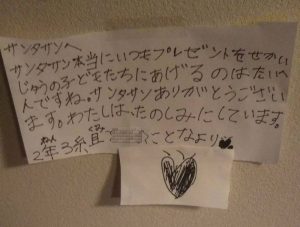 サンタサンへ
サンタサン本当にいつもプレゼントをせかい
じゅうの子どもたちにあげるのはたいへ
んですね。サンタサンありがとうござい
ます。わたしは、たのしみにしています。
ねん くみ
2年3組 ことなより